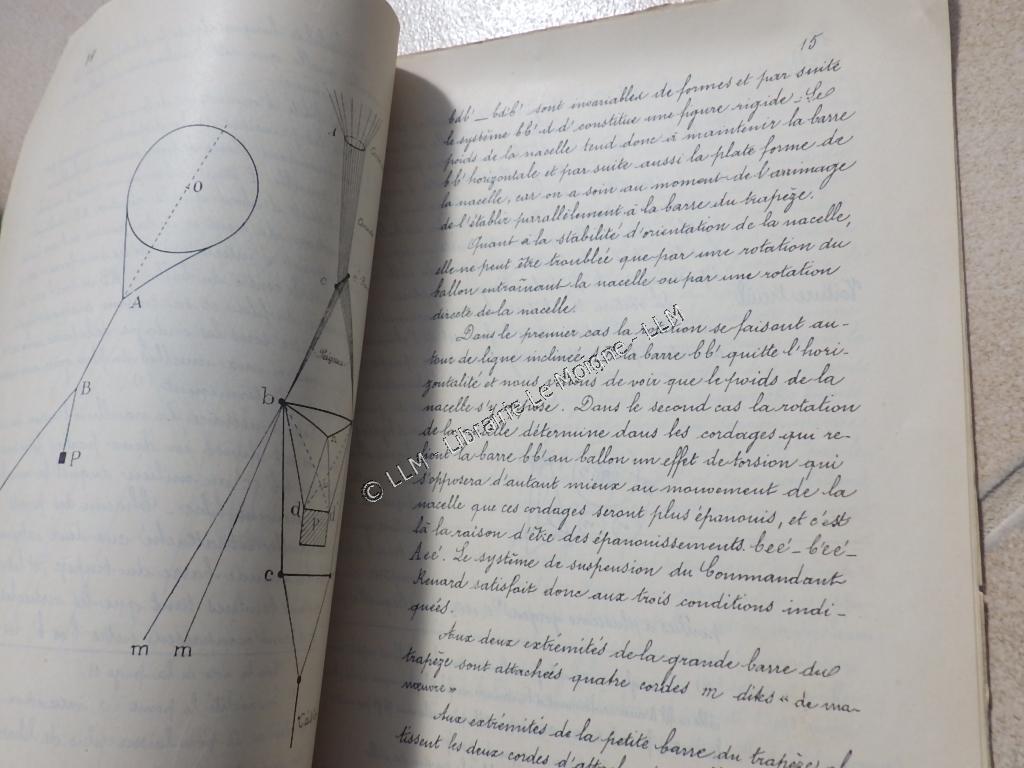 14
O
A
B
P
A
e
Pâques
b
d
d'
P
c
m m
15
bdb' _ bd'b' sont invariables de formes et par suite
le système bb'd d' constitue une figure rigide _ Le
poids de la nacelle tend donc à maintenir la barre
bb' horizontale et par suite aussi la plate forme de
la nacelle, car on a soin au moment de l'arrimage
de l'établir parallèlement à la barre du trapèze.
Quant à la stabilité d'orientation de la nacelle,
elle ne peut être troublée que par une rotation du
ballon entrainant la nacelle ou par une rotation
directe de la nacelle.
Dans le premier cas la rotation se faisant au-
tour de ligne inclinée la barre bb' quitte l'hori-
zontalité et nous venons de voir que le poids de la
nacelle s'y oppose. Dans le second cas la rotation
de la nacelle détermine dans les cordages qui re-
lient la barre bb' au ballon un effet de torsion qui
s'opposera d'autant mieux au mouvement de la
nacelle que ces cordages seront plus épanouis, et c'est
là la raison d'être des épanouissements. bee' - b'ee' -
Aee'. Le système de suspension du Commandant
Renard satisfait donc aux trois conditions indi-
quées.
Aux deux extrémités de la grande barre du
trapèze sont attachées quatre cordes m dites « de ma-
nœuvre »
Aux extrémités de la petite barre du trapèze
tissent les deux cordes
© LLM - Librairie Le Moigne - LLM